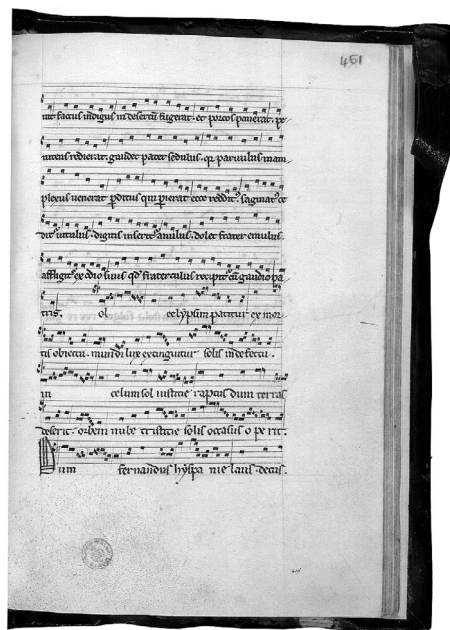 451
uit. factus indignus in desertū fugerat. et porcos pauerat. pe
nitens redierat. gaudet pater sedulus. qꝫ paruulus mani
plexus uenerat ꝑditus qui ꝑierat ecce reddit᷒. saginat᷒ ce
dit᷒ uitulus. digitis insertꝰ anulus. dolet frater emulus.
affligitꝰ ex odio liuus qd̄ fraterculus recipitꝰ cū gaudio pa
tris. ol eclypsim patitur ex mor
tis obiectu. mundi lux extinguitur solis in defectu.
in celum sol iusticie raptus dum terras
deserit. orbem nube tristicie solis occasus operit.
um fernandus hyspanie laus. decus.